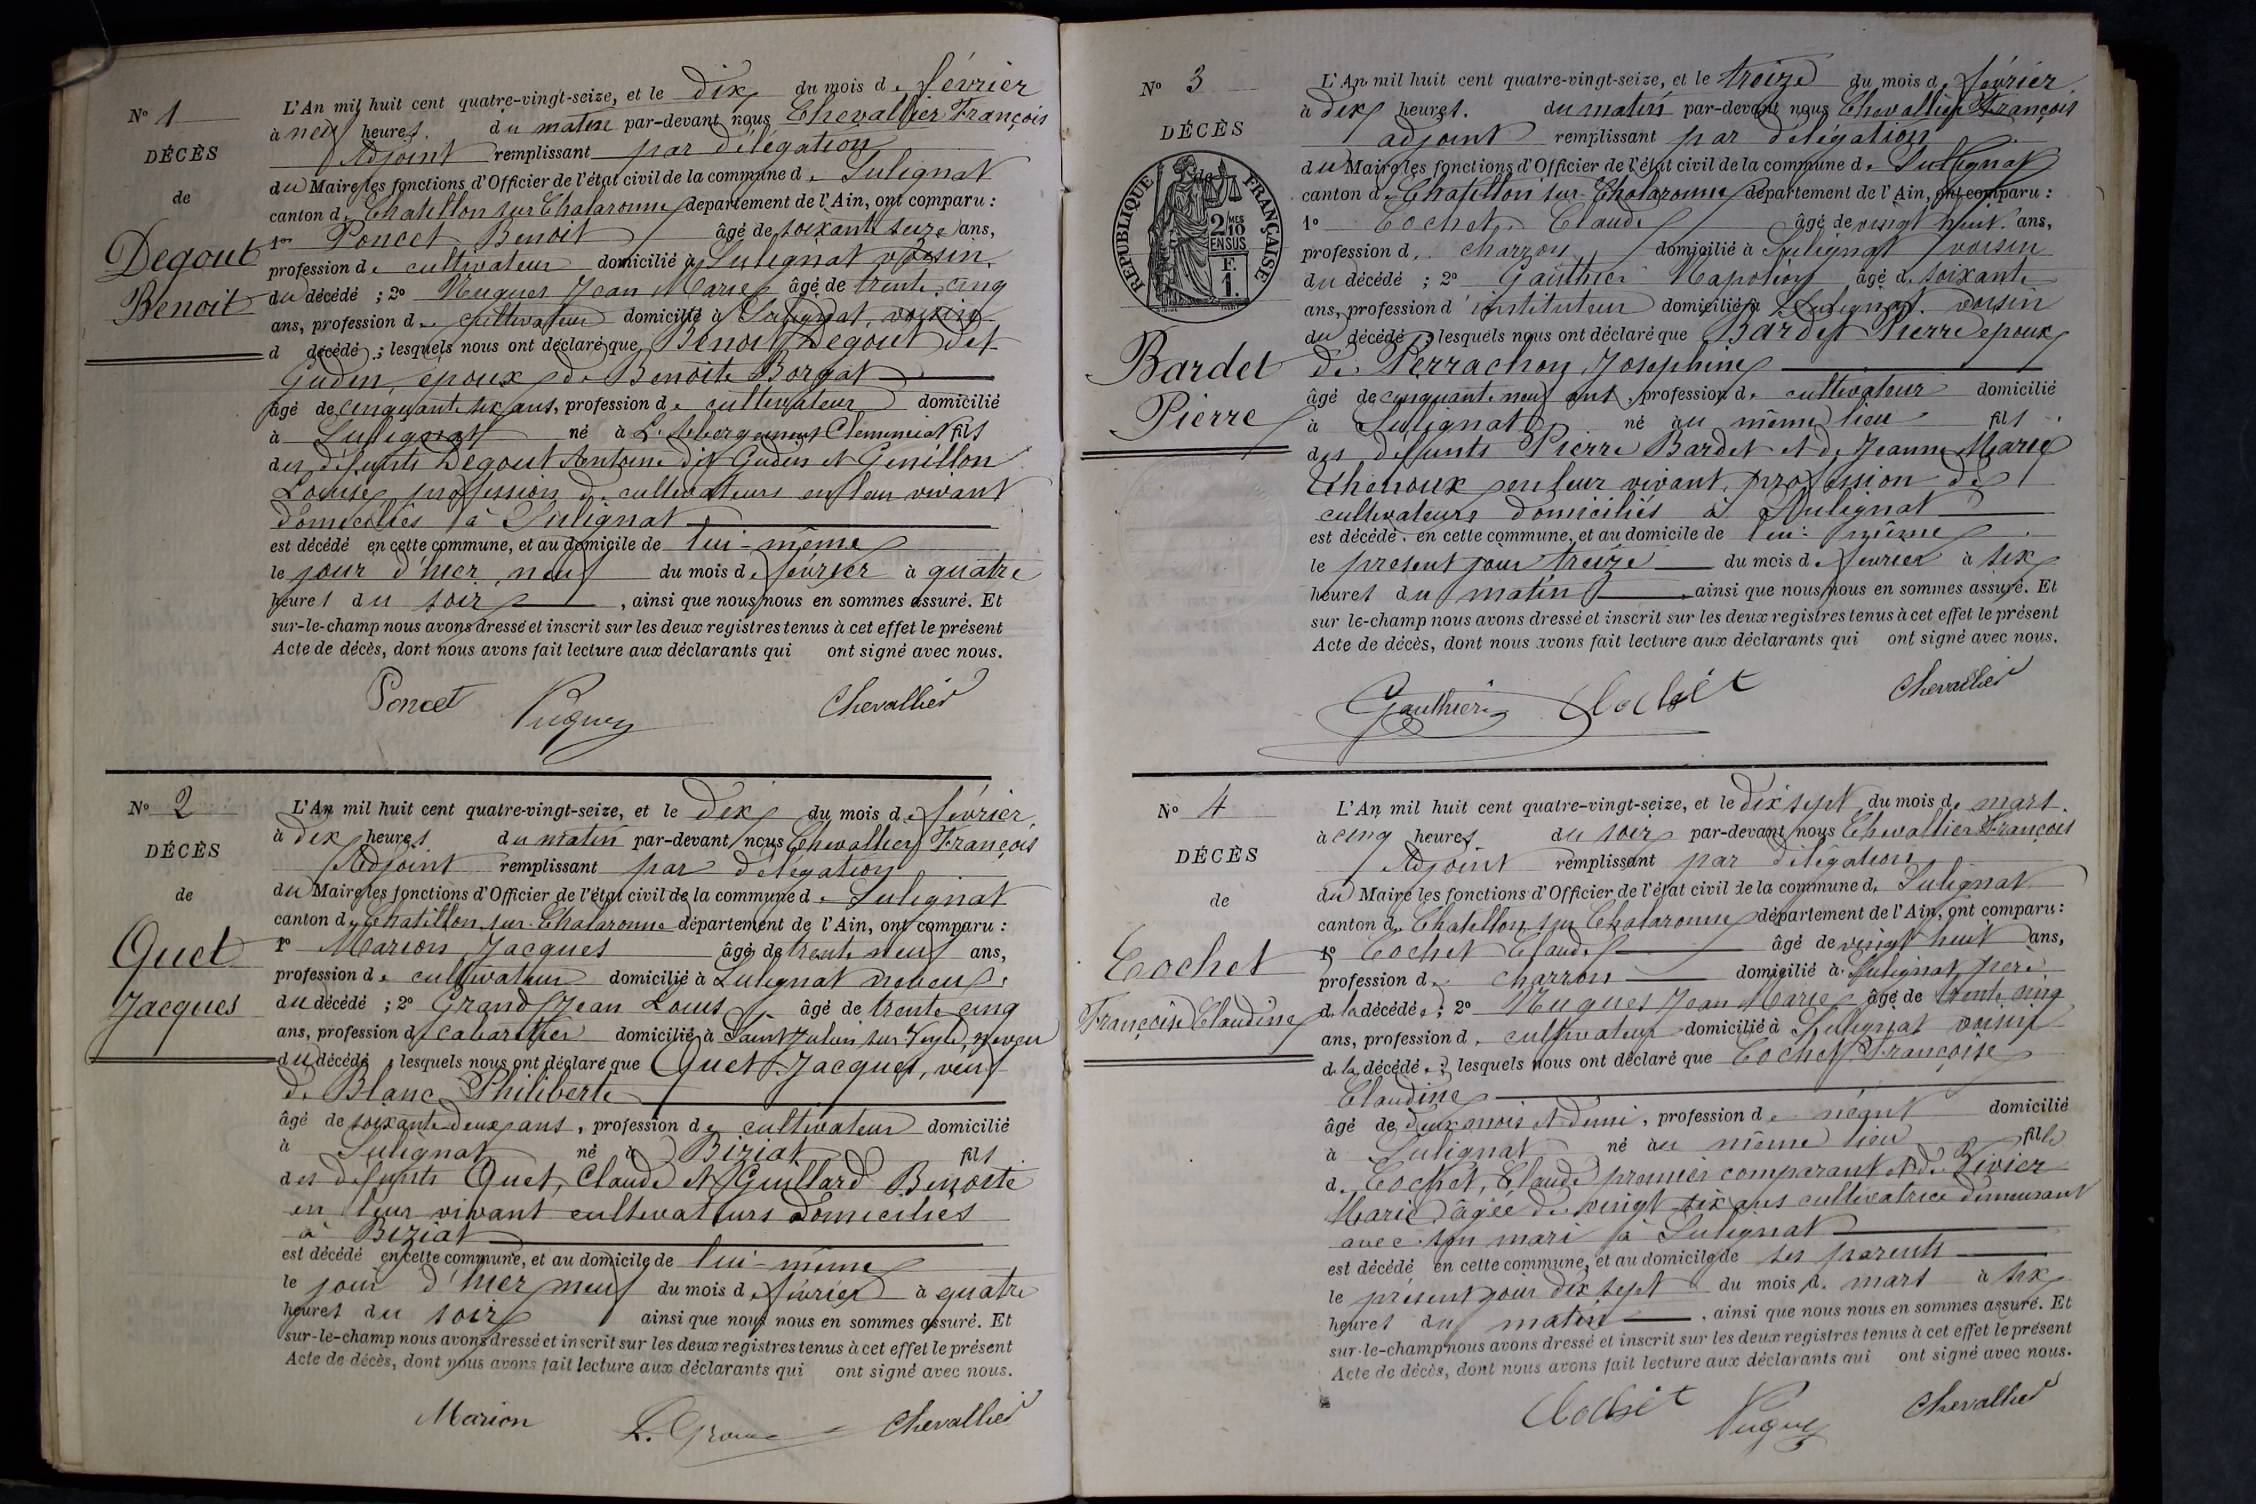 N° 1
DÉCÈS
de
Degout
Benoit
L'An mil huit cent quatre-vingt-seize, et le dix du mois de février
à neuf heures du matin par-devant nous Chevallier François
Adjoint remplissant par délégation
du Maire les fonctions d'Officier de l'état civil de la commune de Sulignat
canton de Chatillon sur Chalaronne département de l'Ain, ont comparu :
1° Poncet Benoit âgé de soixante seize ans,
profession de cultivateur domicilié à Sulignat voisin
du décédé ; 2° Nugues Jean Marie âgé de trente cinq
ans, profession de cultivateur domicilié à Sulignat, voisin
d décédé ; lesquels nous ont déclaré que Benoit Degout dit
Gudin, époux de Benoite Borgat
âgé de cinquante six ans, profession de cultivateur domicilié
à Sulignat né à L'Abergement Clémenciat fils
des défunts Degout Antoine dit Gudin et Genillon
Louise profession de cultivateurs en leur vivant
domiciliés à Sulignat
est décédé en cette commune, et au domicile de lui-même
le jour d'hier neuf du mois de février à quatre
heures du soir, ainsi que nous nous en sommes assuré. Et
sur-le-champ nous avons dressé et inscrit sur les deux registres tenus à cet effet le présent
Acte de décès, dont nous avons fait lecture aux déclarants qui ont signé avec nous.
Poncet Nugues Chevallier
N° 2
DÉCÈS
de
Quet
Jacques
L'An mil huit cent quatre-vingt-seize, et le dix du mois de février
à dix heures du matin par-devant nous Chevallier François
Adjoint remplissant par délégation
du Maire les fonctions d'Officier de l'état civil de la commune de Sulignat
canton de Chatillon sur Chalaronne département de l'Ain, ont comparu :
1° Marion Jacques âgé de trente neuf ans,
profession de cultivateur domicilié à Sulignat neveu
du décédé ; 2° Grand Jean Louis âgé de trente cinq
ans, profession de cabaretier domicilié à Saint Julien sur Veyle, neveu
du décédé lesquels nous ont déclaré que Quet Jacques, veuf
de Blanc Philiberte
âgé de soixante deux ans, profession de cultivateur domicilié
à Sulignat né à Biziat fils
des défunts Quet, Claude et Guillard Benoite
en leur vivant cultivateurs domiciliés
à Biziat
est décédé en cette commune, et au domicile de lui-même
le jour d'hier neuf du mois de février à quatre
heures du soir ainsi que nous nous en sommes assuré. Et
sur-le-champ nous avons dressé et inscrit sur les deux registres tenus à cet effet le présent
Acte de décès, dont nous avons fait lecture aux déclarants qui ont signé avec nous.
Marion L. Grand Chevallier
N° 3
DÉCÈS
de
RÉPUBLIQUE FRANÇAISE
2 MES
10
EN SUS
F.
1.
Bardet
Pierre
L'An mil huit cent quatre-vingt-seize, et le treize du mois de février
à dix heures. du matin par-devant nous Chevallier François
adjoint remplissant par délégation
du Maire les fonctions d'Officier de l'état civil de la commune de Sulignat
canton de Chatillon sur Chalaronne département de l'Ain, ont comparu :
1° Cochet Claude âgé de vingt huit ans,
profession de charron domicilié à Sulignat voisin
du décédé ; 2° Gauthier Napoléon âgé de soixante
ans, profession d'instituteur domicilié à Sulignat. voisin
du décédé ; lesquels nous ont déclaré que Bardet Pierre époux
de Perrachon Joséphine
âgé de cinquante neuf ans, profession de cultivateur domicilié
à Sulignat né au même lieu fils
des défunts Pierre Bardet et de Jeanne Marie
Chenoux en leur vivant, profession de
cultivateurs domiciliés à Sulignat
est décédé en cette commune, et au domicile de lui-même
le présent jour treize du mois de février à six
heures du matin ainsi que nous nous en sommes assuré. Et
sur le-champ nous avons dressé et inscrit sur les deux registres tenus à cet effet le présent
Acte de décès, dont nous avons fait lecture aux déclarants qui ont signé avec nous.
Gauthier Cochet Chevallier
N° 4
DÉCÈS
de
Cochet
Françoise Claudine
L'An mil huit cent quatre-vingt-seize, et le dix sept du mois de mars
à cinq heures du soir par-devant nous Chevallier François
Adjoint remplissant par délégation
du Maire les fonctions d'Officier de l'état civil de la commune de Sulignat
canton de Chatillon sur Chalaronne département de l'Ain, ont comparu :
1° Cochet Claude âgé de vingt huit ans,
profession de charron domicilié à Sulignat, père
de la décédée ; 2° Nugues Jean Marie âgé de trente cinq
ans, profession de cultivateur domicilié à Sulignat voisin
de la décédée ; lesquels nous ont déclaré que Cochet Françoise
Claudine
âgé de deux mois et demi, profession de néant domicilié
à Sulignat né au même lieu fille
de Cochet, Claude premier comparant et de Rivier
Marie âgée de vingt six ans cultivatrice demeurant
avec son mari à Sulignat
est décédé en cette commune, et au domicile de ses parents
le présent jour dix sept du mois de mars à six
heures du matin, ainsi que nous nous en sommes assuré. Et
sur-le-champ nous avons dressé et inscrit sur les deux registres tenus à cet effet le présent
Acte de décès, dont nous avons fait lecture aux déclarants qui ont signé avec nous.
Cochet Nugues Chevallier